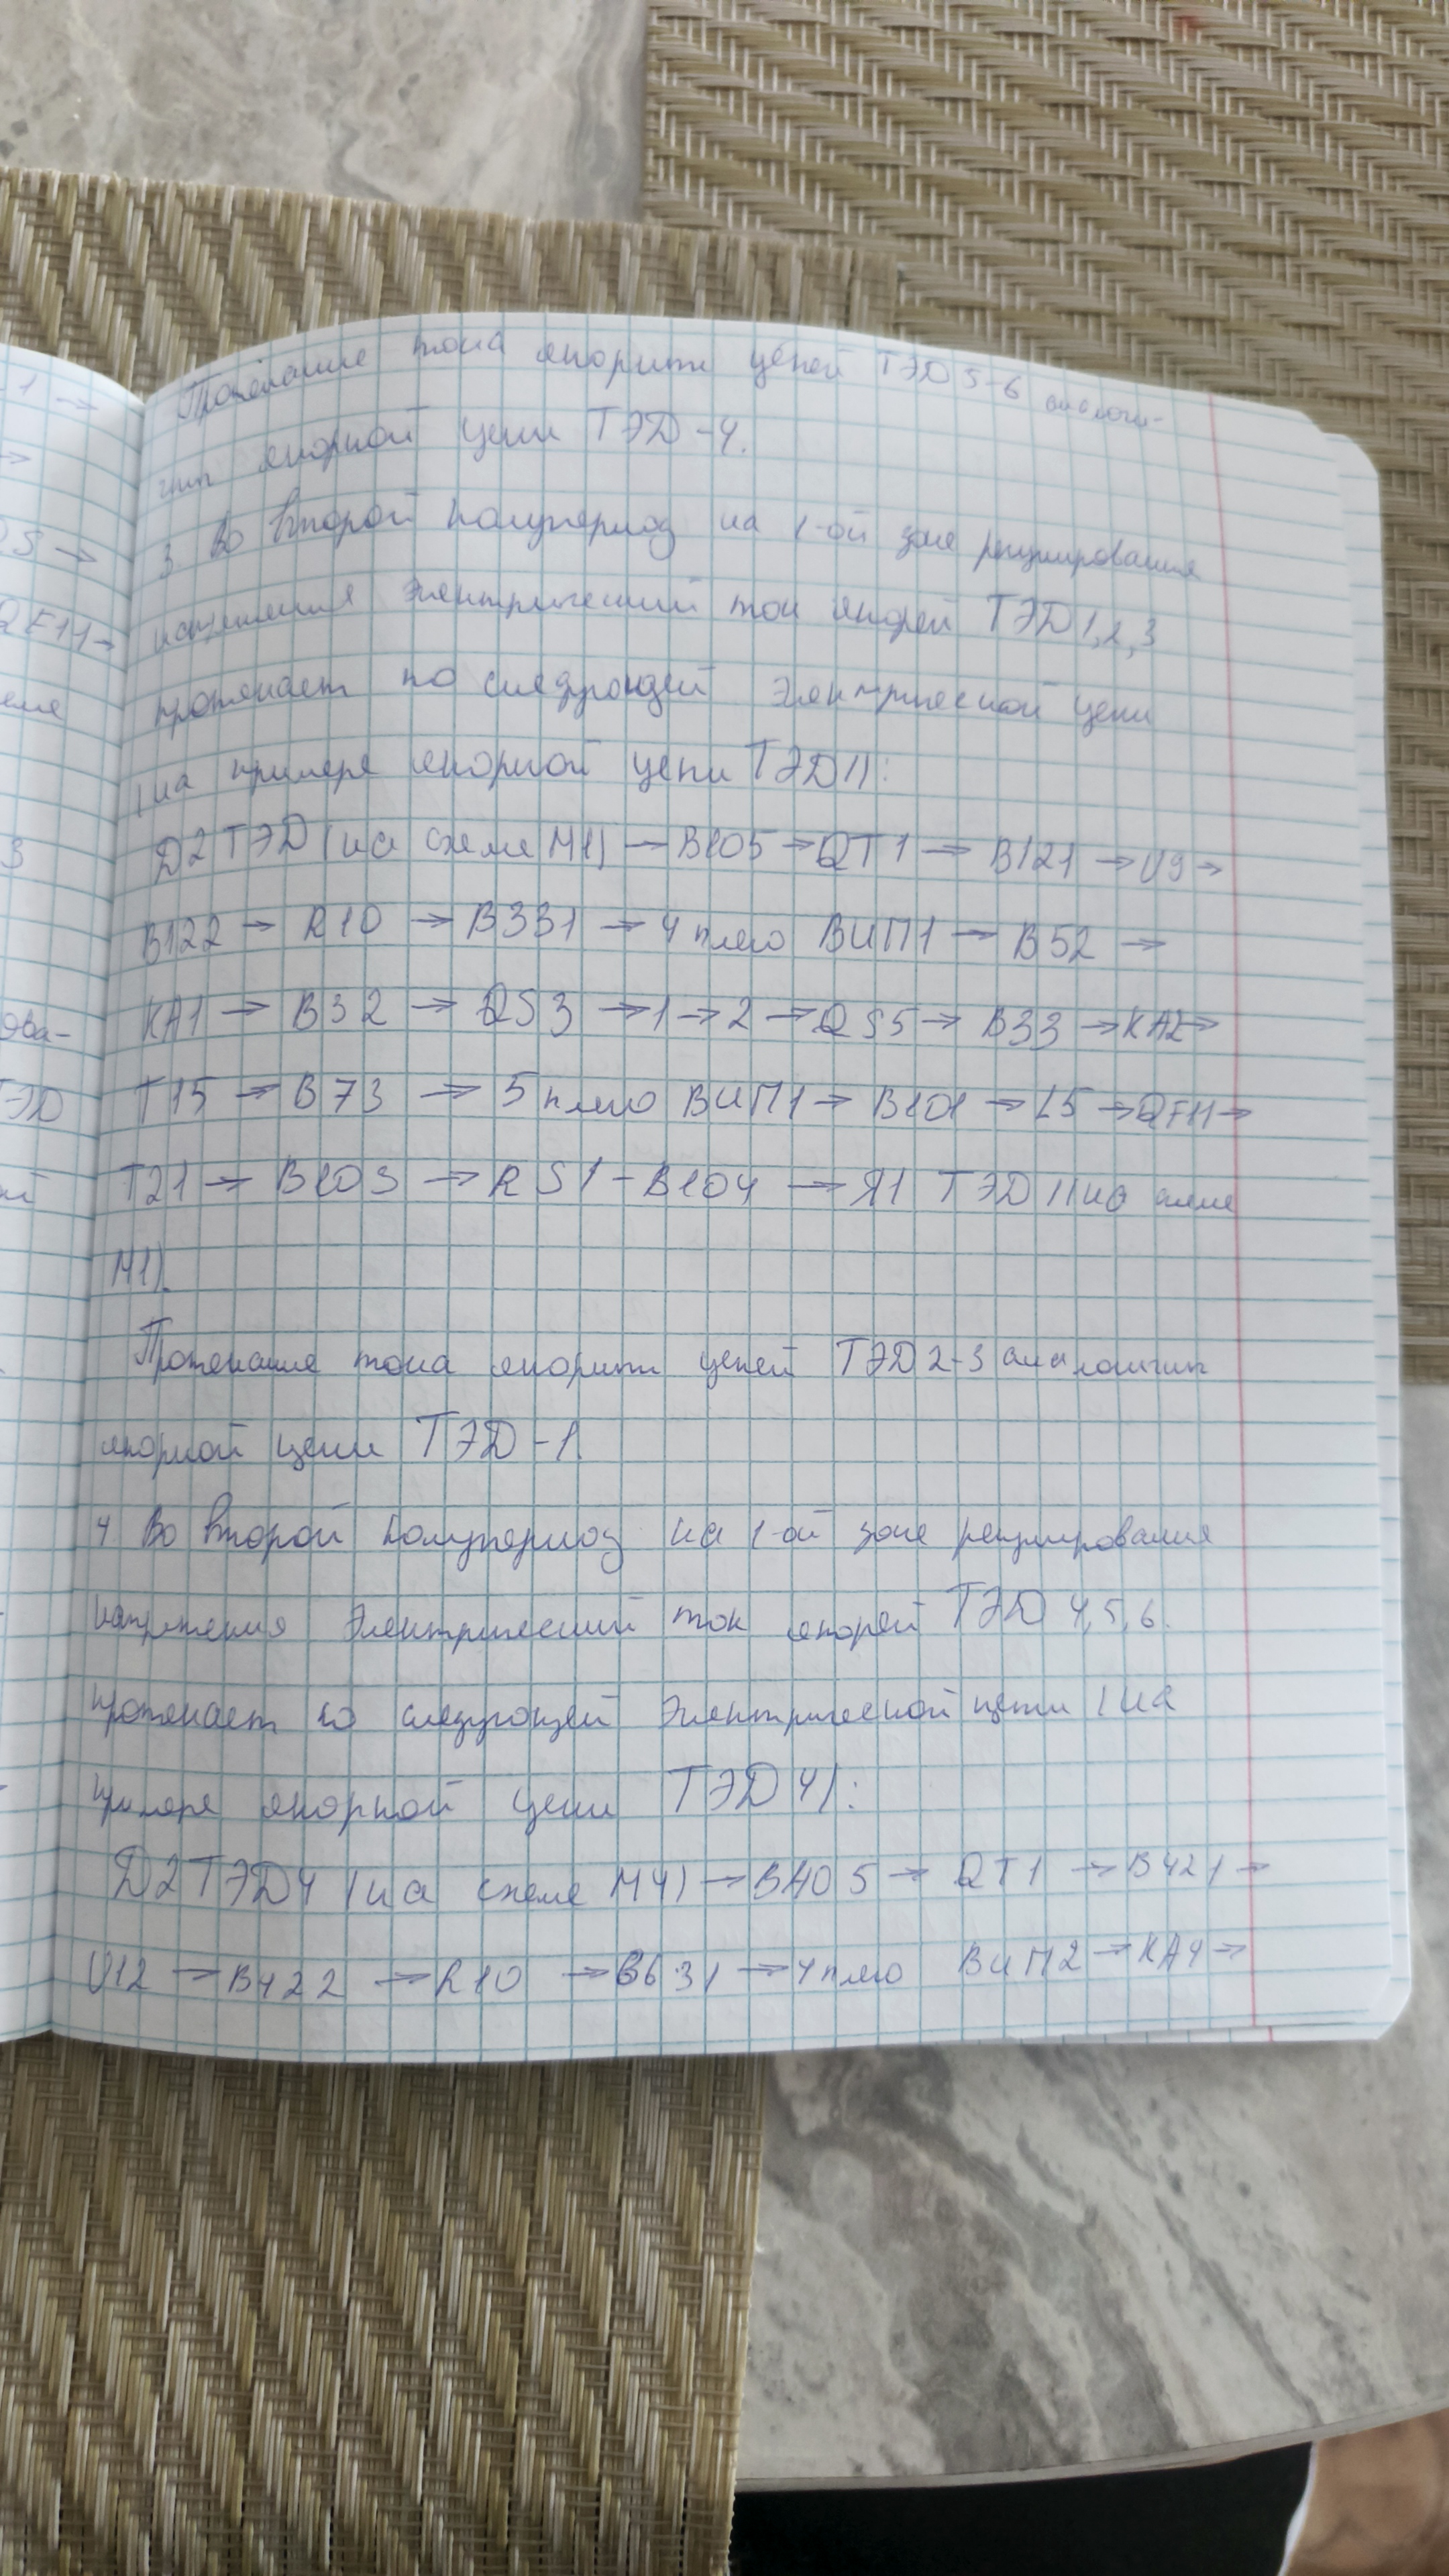 Протекание тока якорных цепей ТЭД 5-6 аналоги-
чны якорной цепи ТЭД-4.
3. Во второй полупериод на 1-ой зоне регулирования
напряжения электрический ток якорей ТЭД 1,2,3
протекает по следующей электрической цепи
(на примере якорной цепи ТЭД1):
Д2 ТЭД (на схеме М1) → В105 → QT1 → В121 → U9 →
В122 → R10 → В331 → 4 плечо ВИП1 → В52 →
КА1 → В32 → QS3 → 1 → 2 → QS5 → В33 → КА2 →
Т15 → В73 → 5 плечо ВИП1 → В101 → L5 → QF11 →
Т21 → В103 → RS1 - В104 → Я1 ТЭД 1 (на схеме
М1).
Протекание тока якорных цепей ТЭД 2-3 аналогичны
якорной цепи ТЭД-1.
4. Во второй полупериод на 1-ой зоне регулирования
напряжения электрический ток якорей ТЭД 4,5,6.
протекает по следующей электрической цепи (на
примере якорной цепи ТЭД 4):
Д2 ТЭД4 (на схеме М4) → В405 → QT1 → В421 →
U12 → В422 → R10 → В631 → 4 плечо ВИП2 → КА4 →
1 →
→
QS →
QF11 →
3
ТЭД